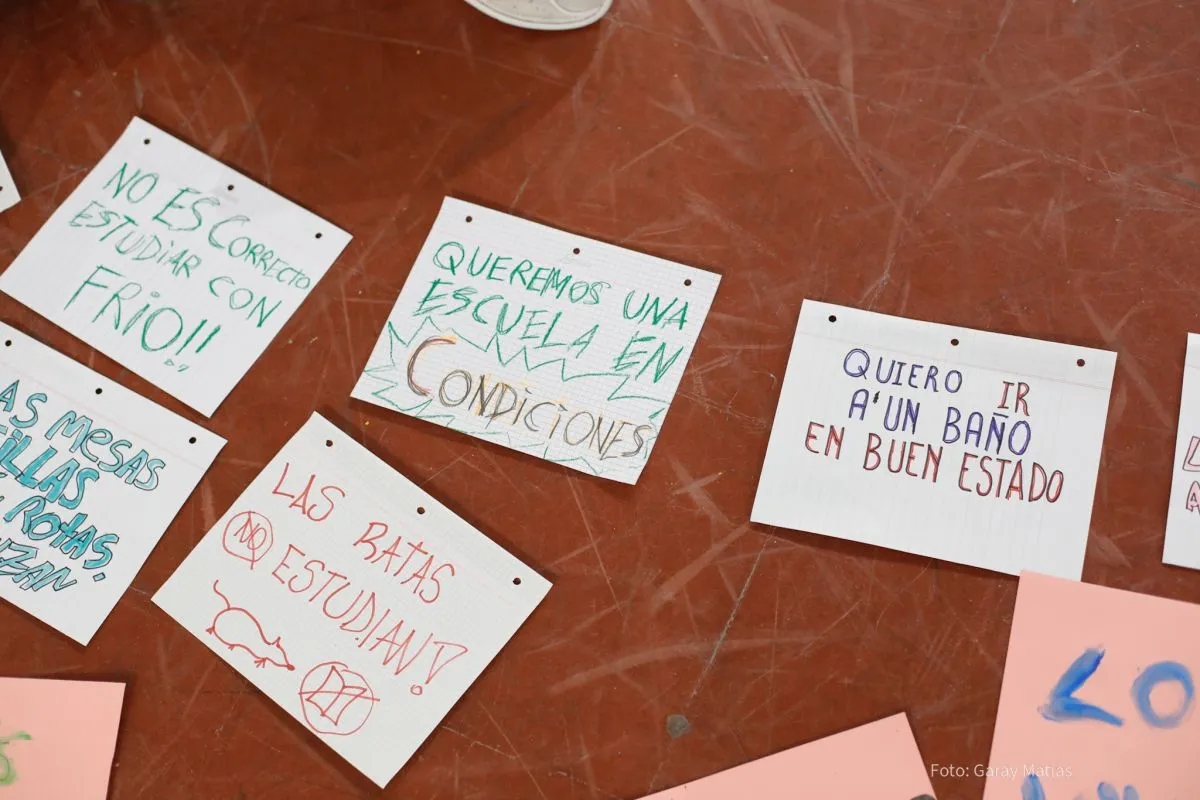 NO ES CORRECTO
ESTUDIAR CON
FRIO!!
QUEREMOS UNA
ESCUELA EN
CONDICIONES
QUIERO IR
A UN BAÑO
EN BUEN ESTADO
AS MESAS
ILLAS
ROTAS.
LAS RATAS
NO ESTUDIAN!
LO
Foto: Garay Matías